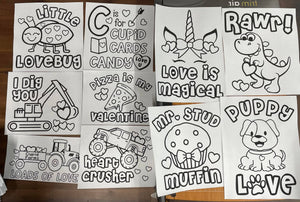 LITTLE
LOVEBUG
C is
for
CUPID
CARDS
CANDY
LOVE IS
MAGICAL
Rawr!
I DIG
YOU
Pizza is my
valentine
LOADS OF LOVE
heart
crusher
MR. STUD
MUFFIN
PUPPY
LOVE